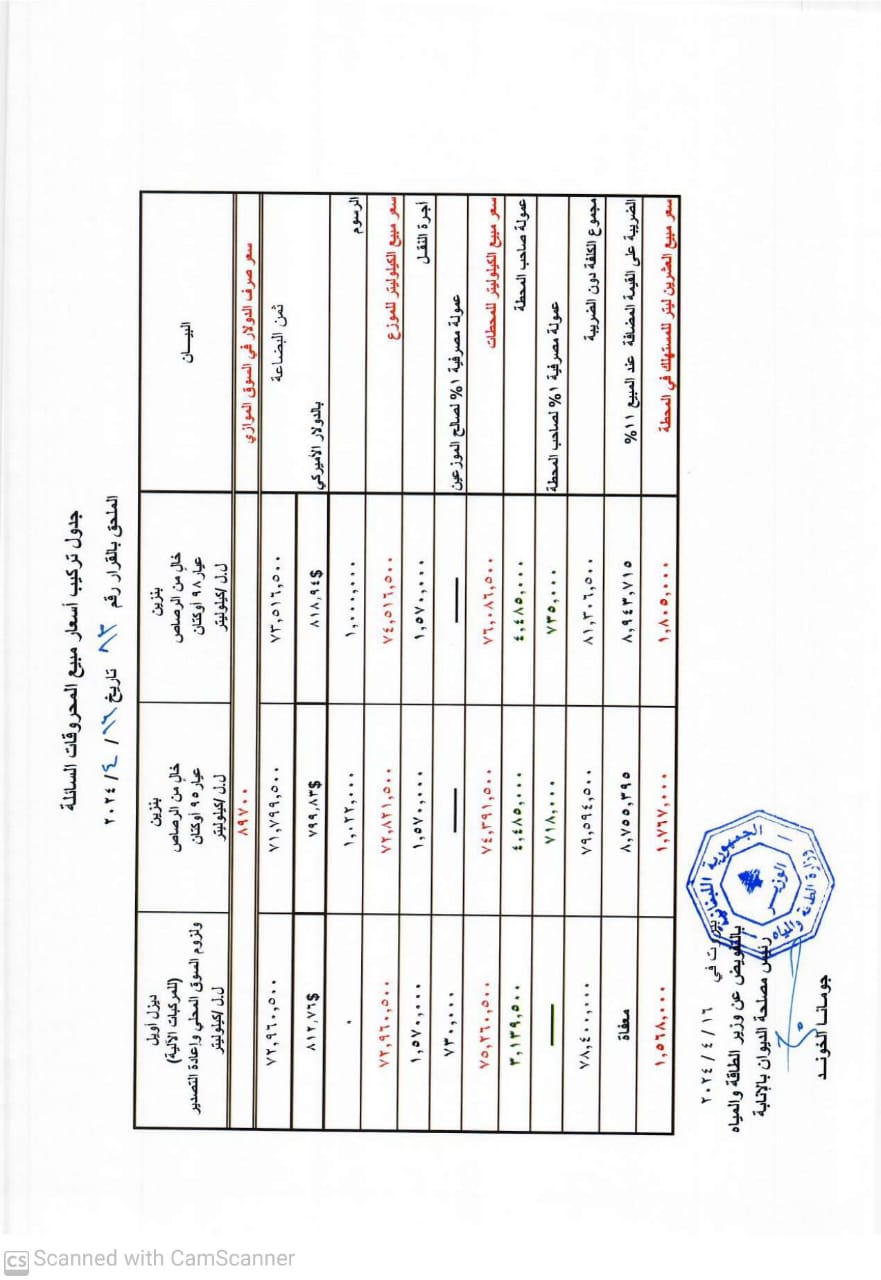 جدول تركيب أسعار مبيع المحروقات السائلة
الملحق بالقرار رقم ٨٣ تاريخ ١٦ / ٤ / ٢٠٢٤
البيـــان
بنزين
عيار ٩٨ أوكتان
خالٍ من الرصاص
ل.ل/كيلوليتر
بنزين
عيار ٩٥ أوكتان
خالٍ من الرصاص
ل.ل/كيلوليتر
ديزل أويل
(للمركبات الآلية)
ولزوم السوق المحلي وإعادة التصدير
ل.ل/كيلوليتر
سعر صرف الدولار في السوق الموازي ٨٩٧٠٠
ثمن البضاعة ٧٣,٥١٦,٥٠٠ ٧١,٧٩٩,٥٠٠ ٧٢,٩٦٠,٥٠٠
بالدولار الأميركي ٨١٨,٩٤$ ٧٩٩,٨٣$ ٨١٢,٧٦$
الرسوم ١,٠٠٠,٠٠٠ ١,٠٢٢,٠٠٠ ٠
سعر مبيع الكيلوليتر للموزع ٧٤,٥١٦,٥٠٠ ٧٢,٨٢١,٥٠٠ ٧٢,٩٦٠,٥٠٠
أجرة النقـل ١,٥٧٠,٠٠٠ ١,٥٧٠,٠٠٠ ١,٥٧٠,٠٠٠
عمولة مصرفية ١% لصالح الموزعين — — ٧٣٠,٠٠٠
سعر مبيع الكيلوليتر للمحطات ٧٦,٠٨٦,٥٠٠ ٧٤,٣٩١,٥٠٠ ٧٥,٢٦٠,٥٠٠
عمولة صاحب المحطة ٤,٤٨٥,٠٠٠ ٤,٤٨٥,٠٠٠ ٣,١٣٩,٥٠٠
عمولة مصرفية ١% لصاحب المحطة ٧٣٥,٠٠٠ ٧١٨,٠٠٠ —
مجموع الكلفة دون الضريبة ٨١,٣٠٦,٥٠٠ ٧٩,٥٩٤,٥٠٠ ٧٨,٤٠٠,٠٠٠
الضريبة على القيمة المضافة عند المبيع ١١% ٨,٩٤٣,٧١٥ ٨,٧٥٥,٣٩٥ معفاة
سعر مبيع العشرين ليتر للمستهلك في المحطة ١,٨٠٥,٠٠٠ ١,٧٦٧,٠٠٠ ١,٥٦٨,٠٠٠
بيروت في ١٦ / ٤ / ٢٠٢٤
بالتفويض عن وزير الطاقة والمياه
رئيس مصلحة الديوان بالإنابة
جومانـا الخونـد
الجمهورية اللبنانية
وزارة الطاقة والمياه
الوزير
CS Scanned with CamScanner